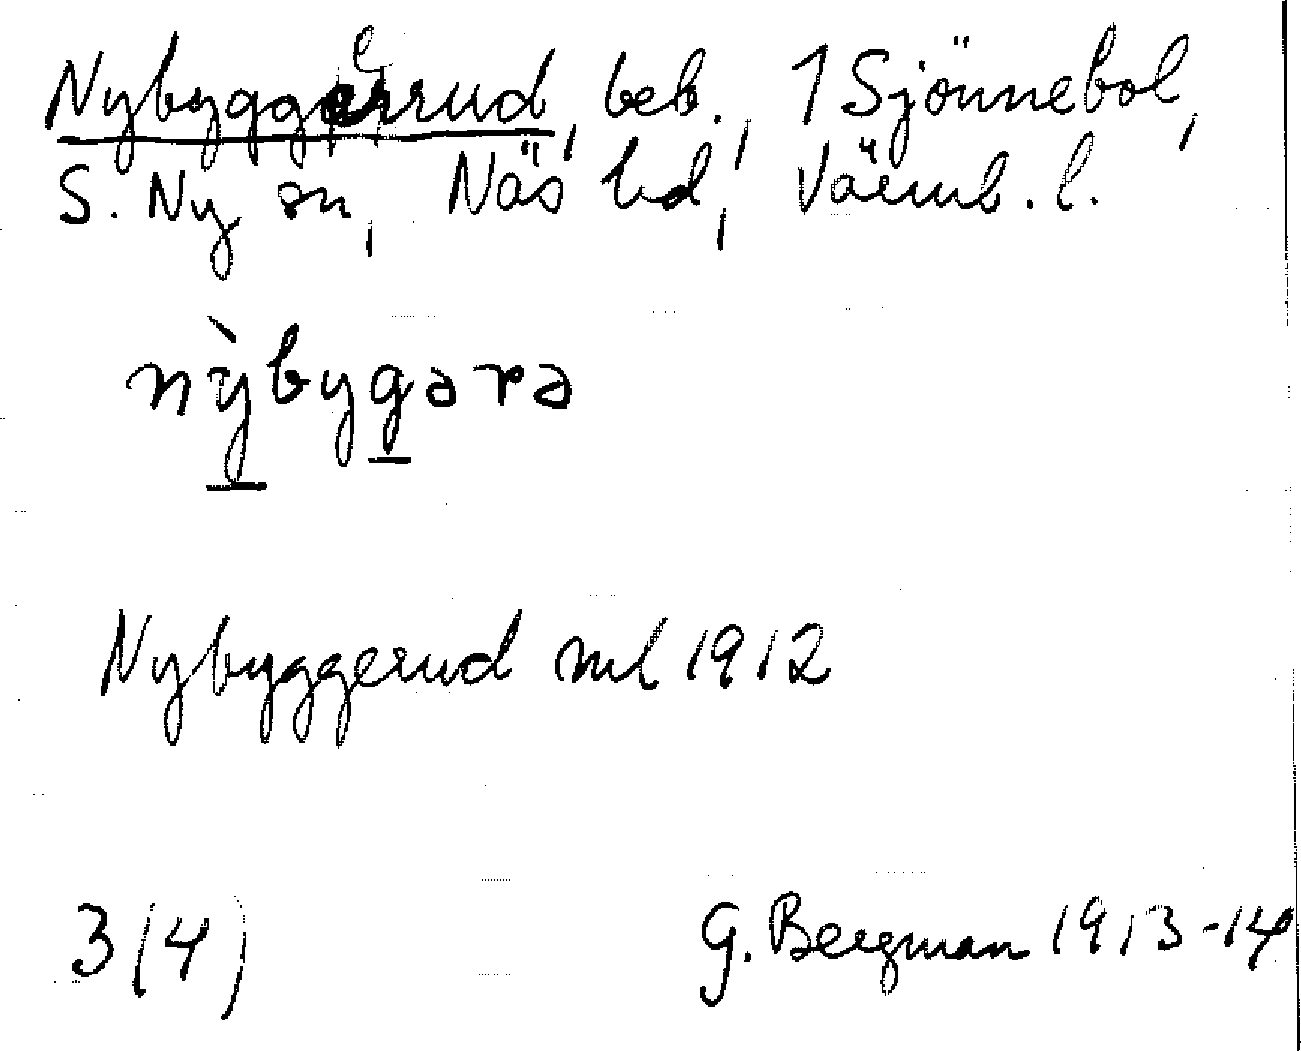 Nybyggerrud, beb., 1 Sjönnebol,
S. Ny sn, Näs hd, Värml. l.
nỳbygərə
Nybyggerud ml 1912
3(4) G. Bergman 1913-14